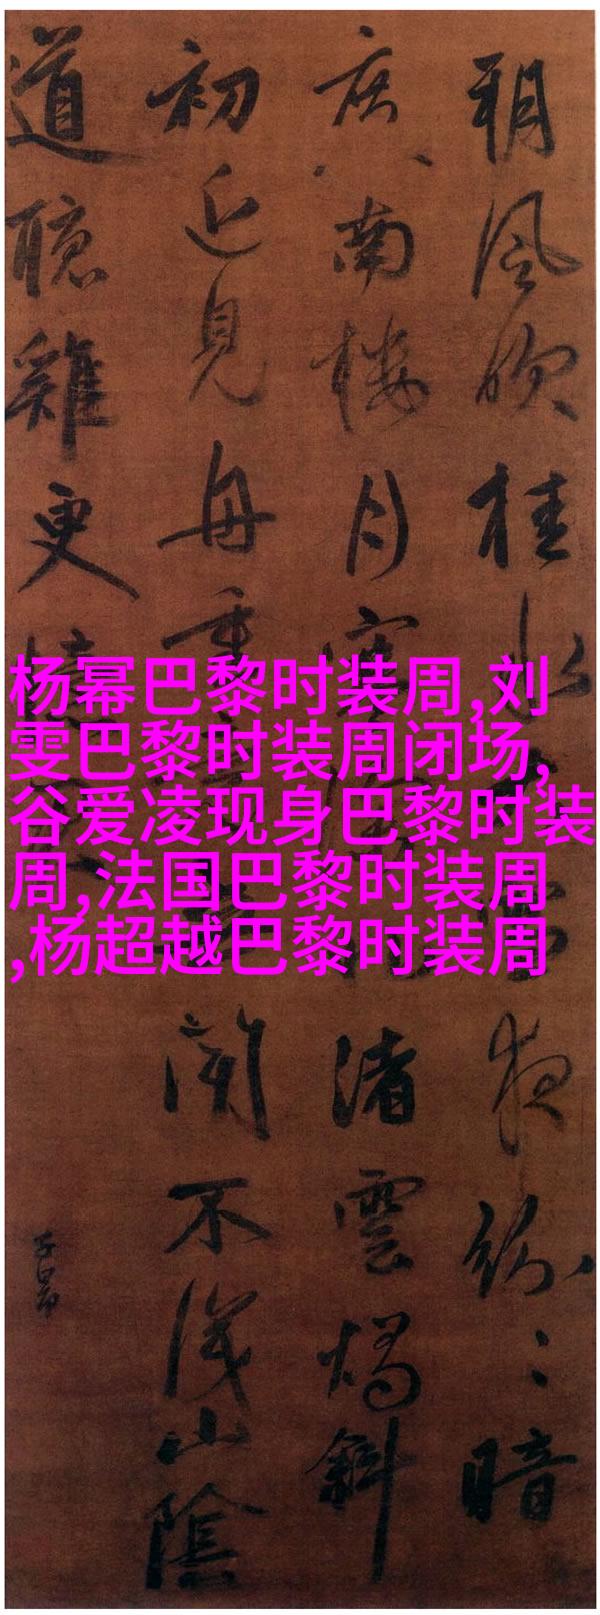 朔風吹桂水夜紛〻暗
度南樓月寒渚雲燭斜
初近見舟重聞不識山陰
道聽雞更
子昂
杨幂巴黎时装周,刘
雯巴黎时装周闭场,
谷爱凌现身巴黎时装
周,法国巴黎时装周
,杨超越巴黎时装周